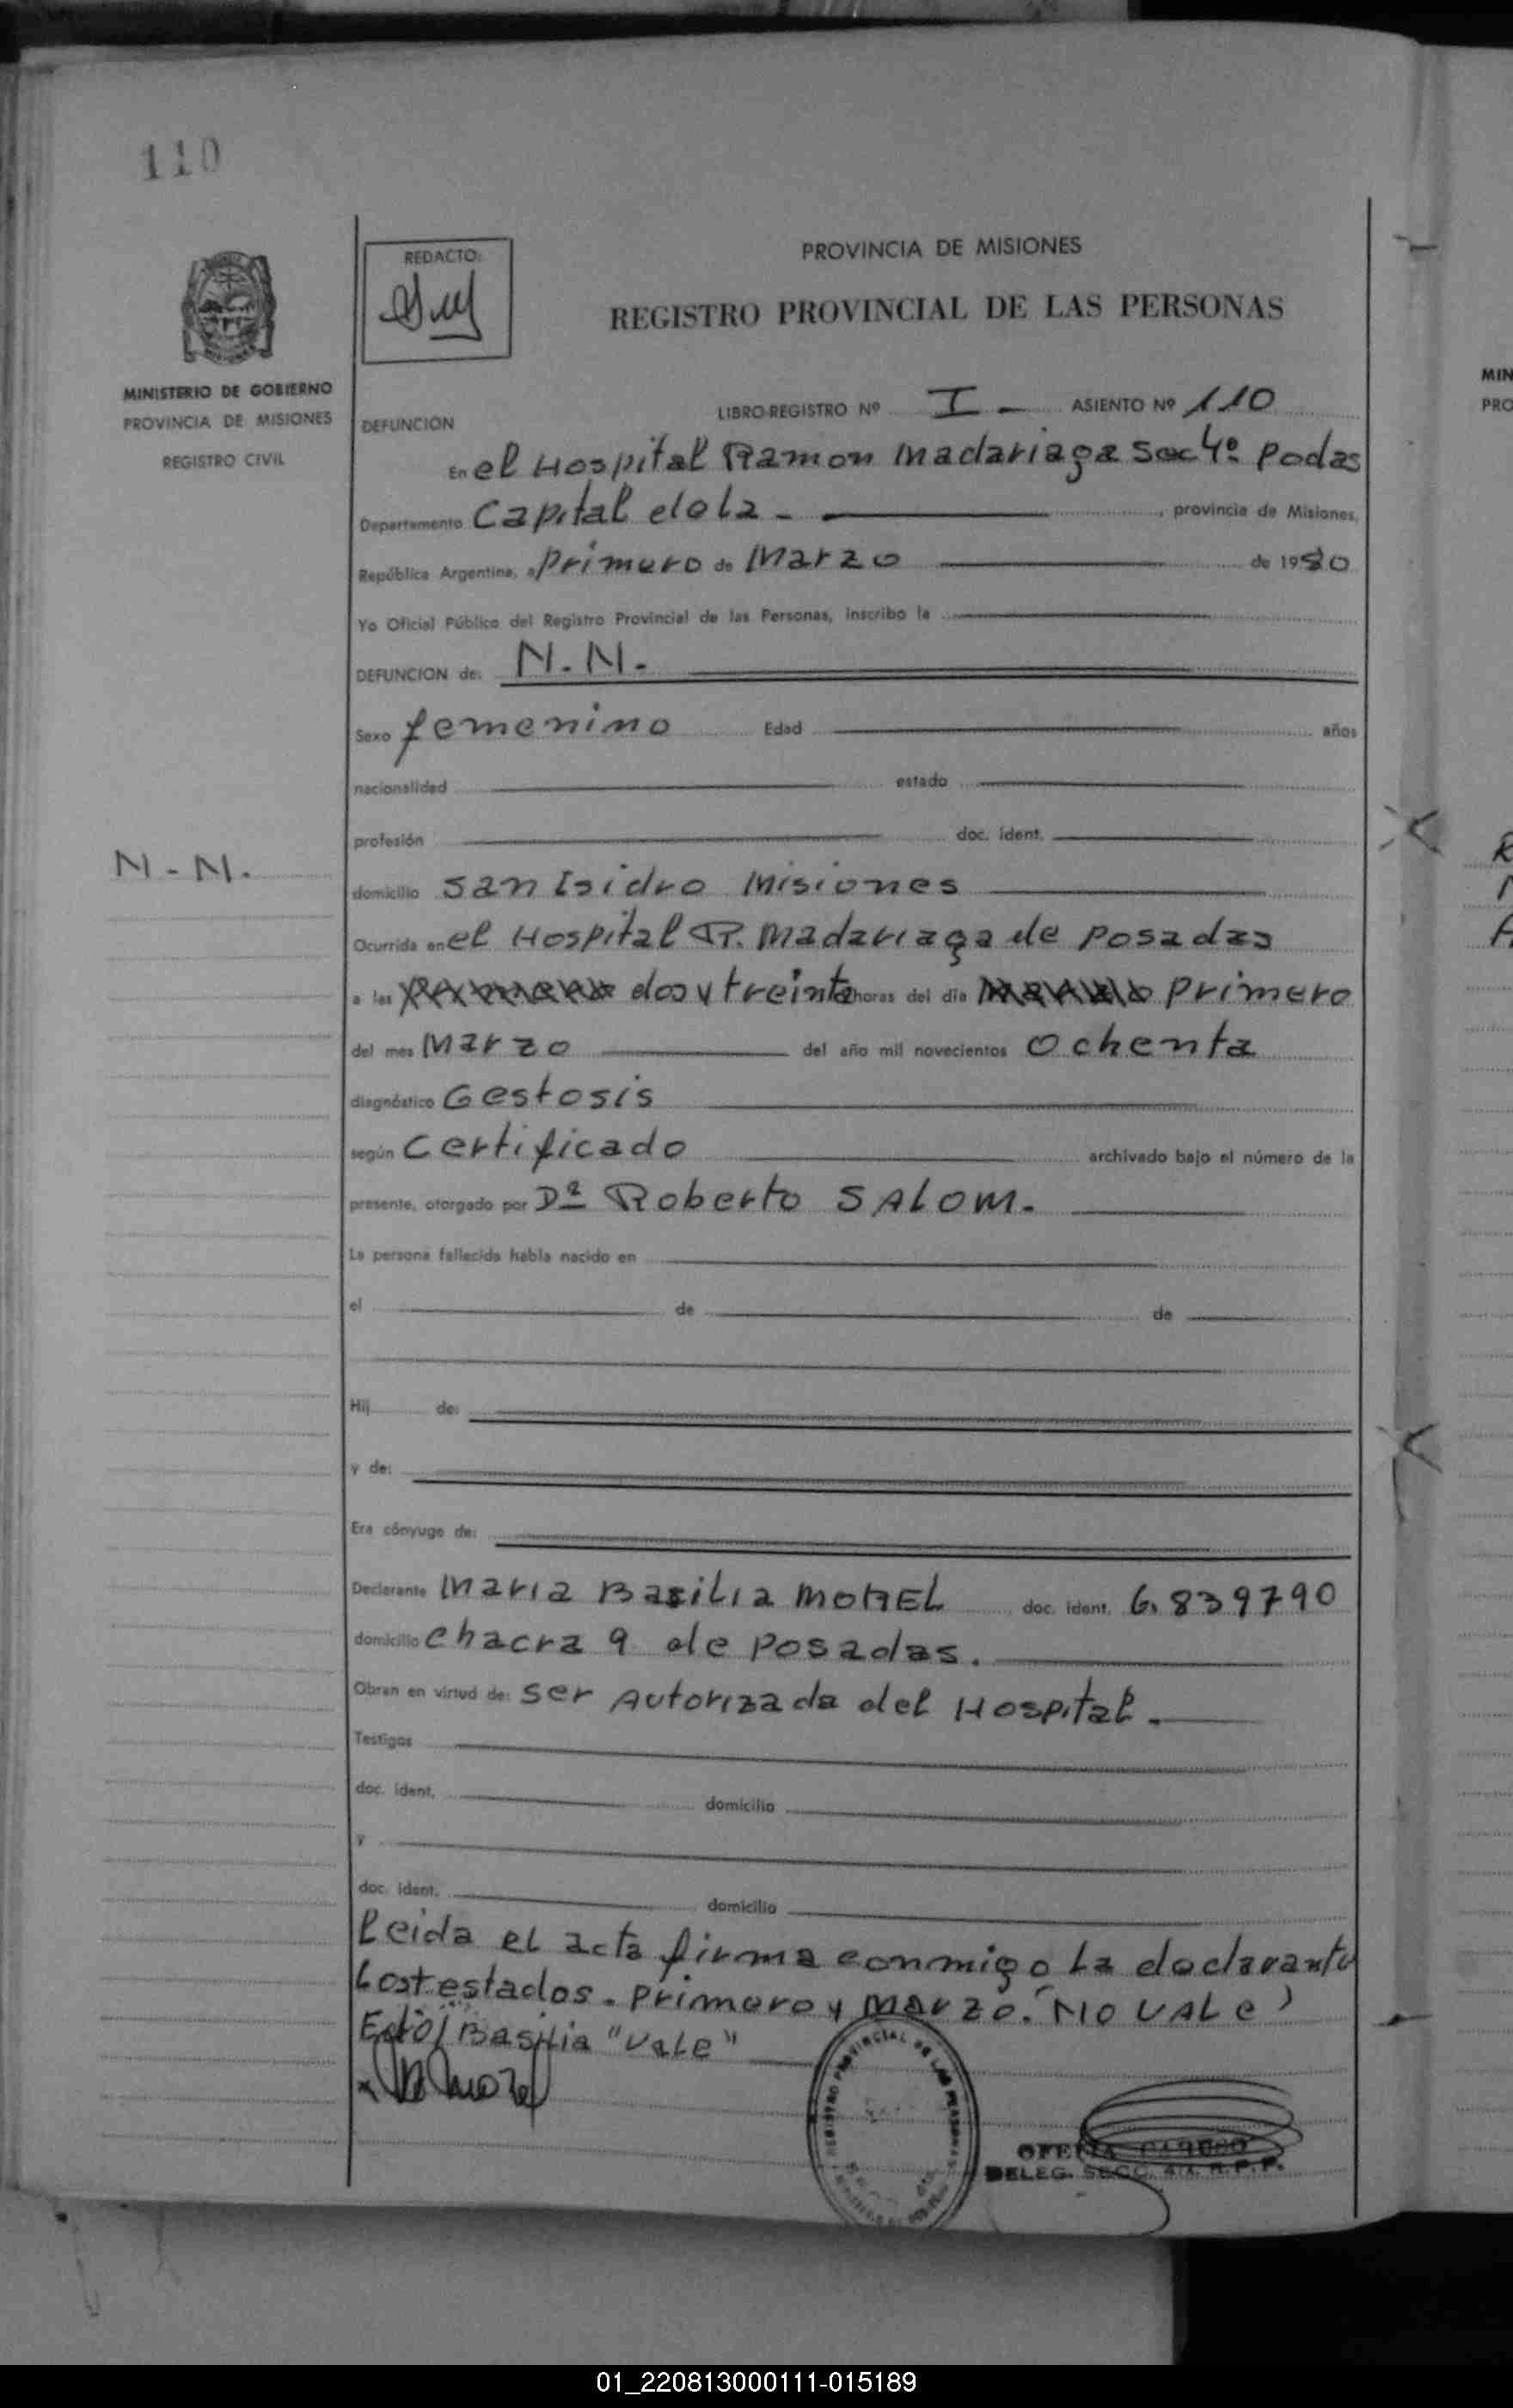 110
REDACTO:
PROVINCIA DE MISIONES
REGISTRO PROVINCIAL DE LAS PERSONAS
MINISTERIO DE GOBIERNO
PROVINCIA DE MISIONES
REGISTRO CIVIL
LIBRO-REGISTRO Nº I - ASIENTO Nº 110
DEFUNCION
En el Hospital Ramon Madariaga Sec 4º Podas
Departamento Capital dela - , provincia de Misiones,
República Argentina, a primero de Marzo de 1980
Yo Oficial Público del Registro Provincial de las Personas, inscribo la
DEFUNCION de: N.N.
Sexo femenino Edad años
nacionalidad estado
profesión doc. ident.
N-N.
domicilio San Isidro Misiones
Ocurrida en el Hospital R. Madariaga de Posadas
a las dos y treinta horas del día primero
del mes Marzo del año mil novecientos Ochenta
diagnóstico Gestosis
según Certificado archivado bajo el número de la
presente, otorgado por Dr Roberto SALOM.
La persona fallecida había nacido en
el de de
Hij de:
y de:
Era cónyuge de:
Declarante Maria Basilia MOREL doc. ident. 6.839790
domicilio chacra 9 de Posadas.
Obran en virtud de: ser Autorizada del Hospital.
Testigos
doc. ident. domicilio
y
doc. ident. domicilio
Leida el acta firma conmigo la declarante
Lo testados. primero y Marzo. "NO VALE"
Basilia "Vale"
REGISTRO PROVINCIAL DE LAS PERSONAS
OFELIA
DELEG. SECC. 4ta. R.P.P.
MIN
PRO
01_220813000111-015189